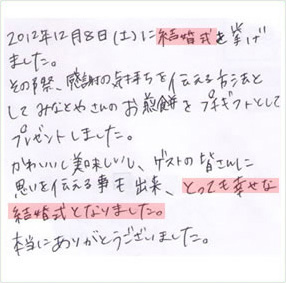 2012年12月8日(土)に結婚式を挙げ
ました。
その際、感謝の気持ちを伝える方法と
してみなとやさんのお煎餅をプチギフトとして
プレゼントしました。
かわいいし美味しいし、ゲストの皆さんに
思いを伝える事も出来、とっても幸せな
結婚式となりました。
本当にありがとうございました。